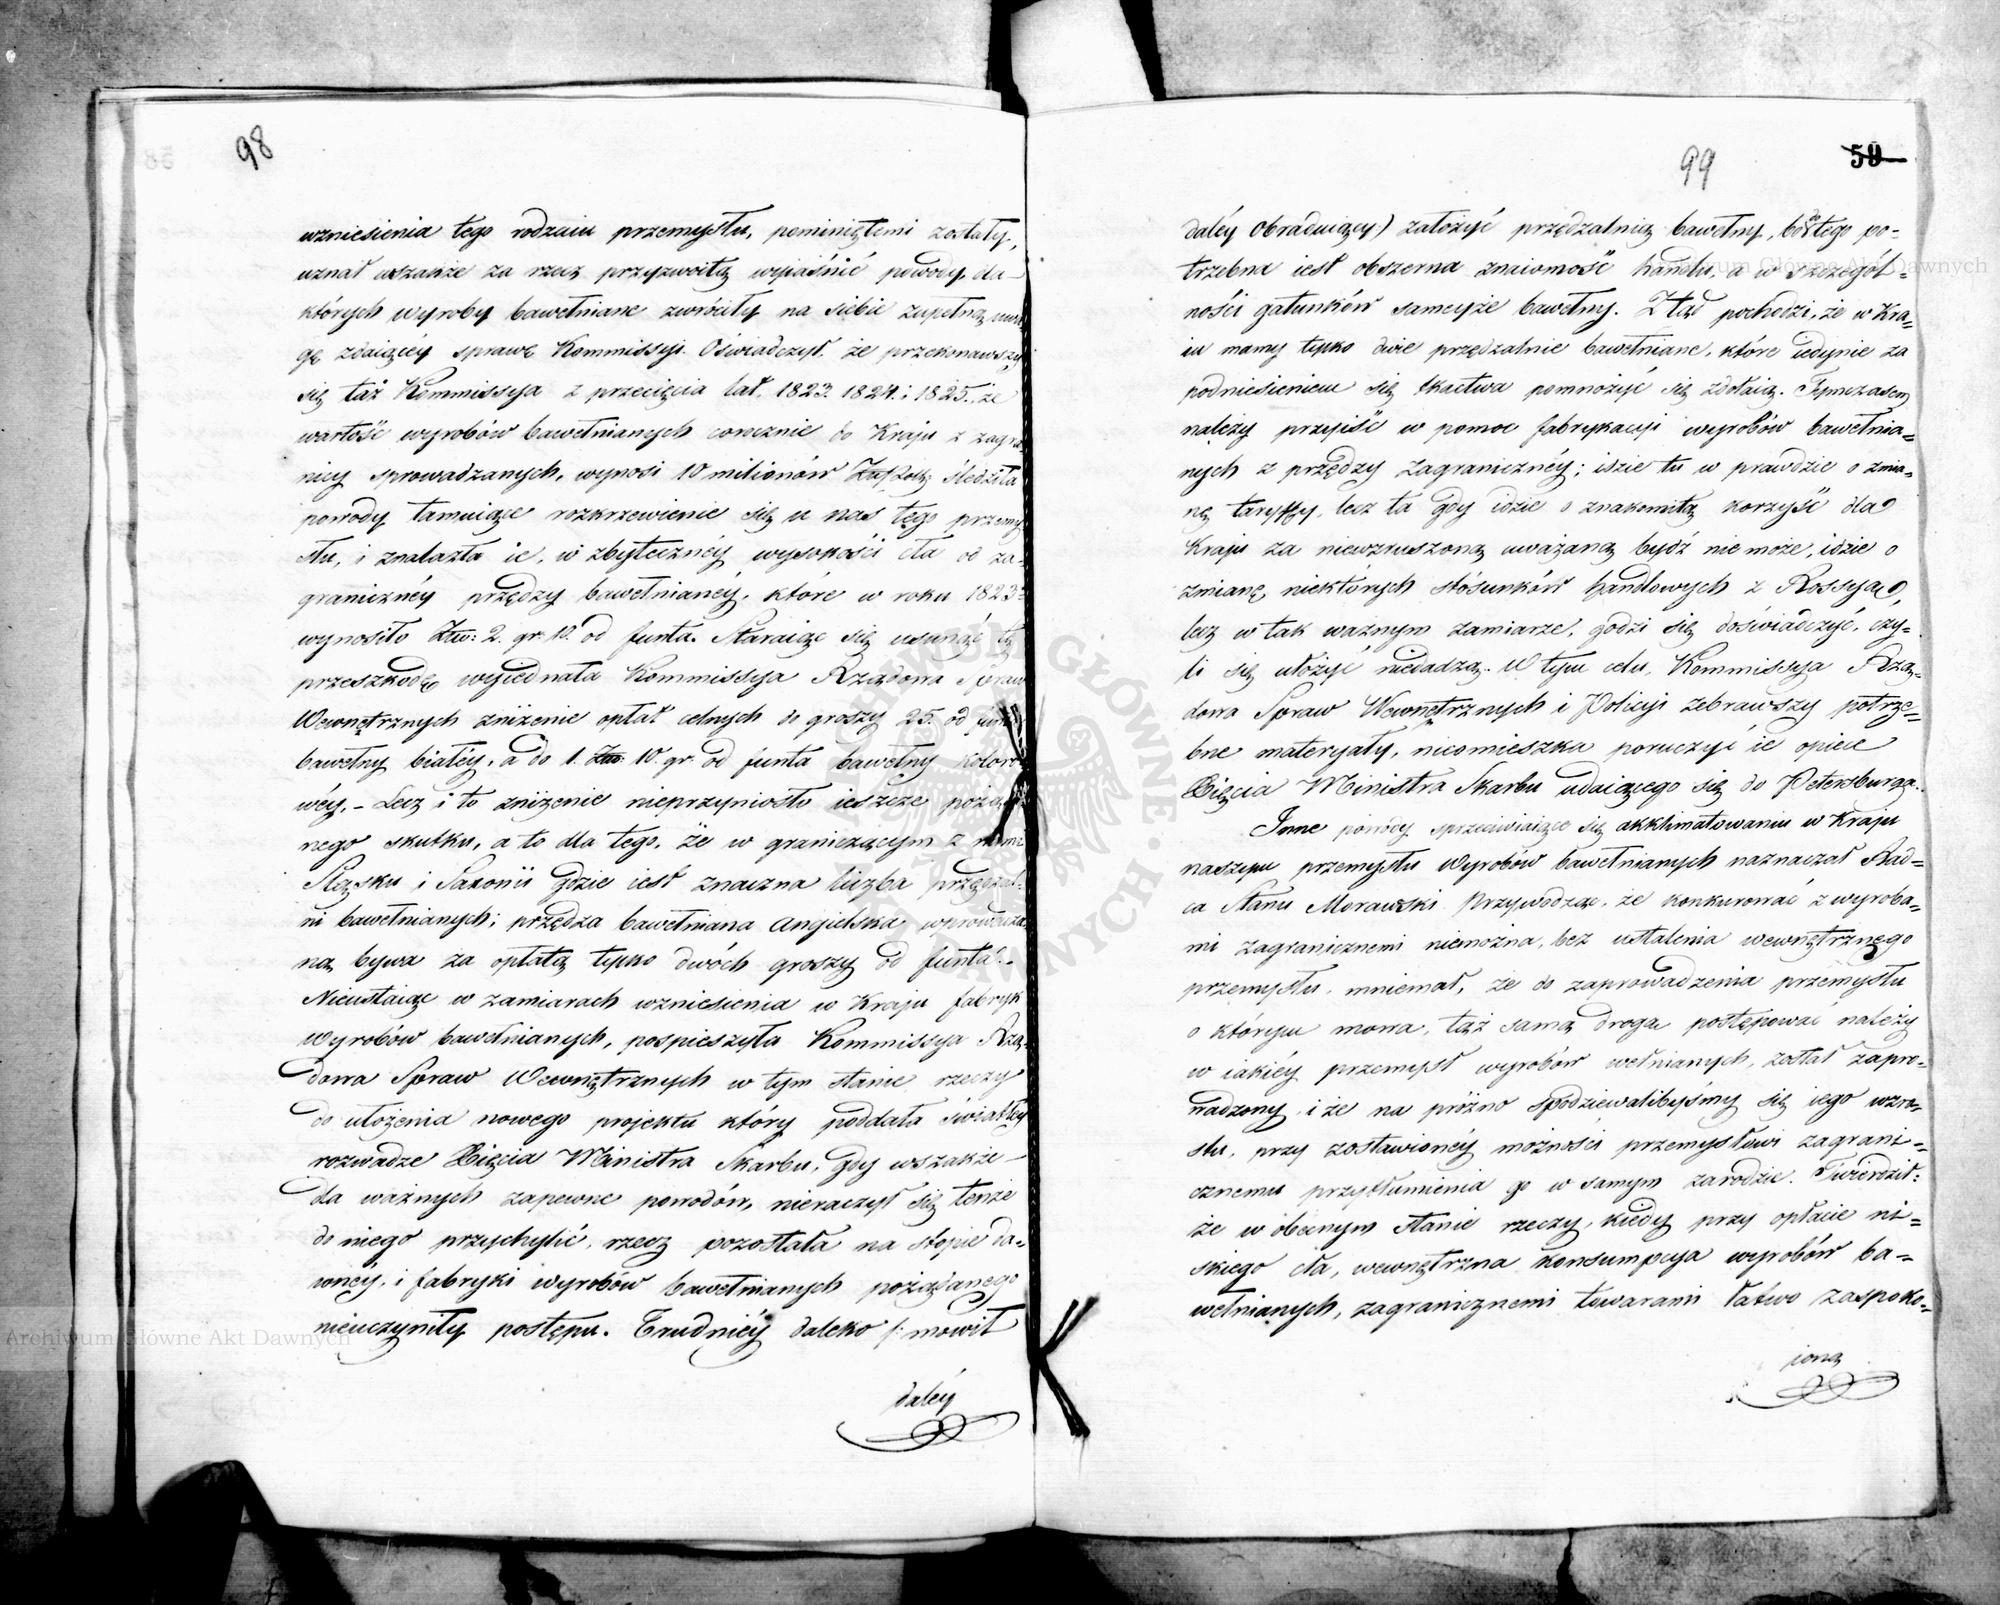 98
wzniesienia tego rodzaiu przemysłu, pominiętemi zostały,
uznał wszakże za rzecz przyzwoitą wyiaśnić powody dla
których wyroby bawełniane zwróciły na siebie zupełną uwa
gę zdaiącéy sprawę Kommissyi. Oświadczył, że przekonawszy
się taż Kommissya z przecięcia lat, 1823. 1824. i 1825. że
wartość wyrobów bawełnianych corocznie do Kraju z zagra
nicy sprowadzanych, wynosi 10 milionów śledziła
powody tamuiące rozkrzewienie się u nas tego przemy
słu, i znalazła ie, w zbyteczney wysokości cła od za-
graniczney przędzy bawełnianéy, które w roku 1823
wynosiło Złw: 2. gr. 10. od funta. Staraiąc się usunąć tę
przeszkodę wyiednała Kommissya Rządowa Spraw
Wewnętrznych zniżenie opłat celnych do groszy 25. od funta
bawełny białéy, a do 1. Złw: 10. gr. od funta bawełny koloro
wéy. - Lecz i to zniżenie nieprzyniosło ieszcze pożąda
nego skutku, a to dla tego, że w graniczącym z nami
Sląsku i Saxonii gdzie iest znaczna liczba przędzal-
ni bawełnianych; przędza bawełniana angielska, wprowadza
ną bywa za opłatą tylko dwóch groszy od funta. -
Nieustaiąc w zamiarach wzniesienia w Kraju fabryk
wyrobów bawełnianych, pospieszyła Kommissya Rzą-
dowa Spraw Wewnętrznych w tym stanie rzeczy
do ułożenia nowego projektu który poddała światłey
rozwadze Xięcia Ministra Skarbu, gdy wszakże
dla ważnych zapewne powodów, nieraczył się tenże
do niego przychylić, rzecz pozostała na stopie da-
wnéy, i fabryki wyrobów bawełnianych pożądanego
nieuczyniły postępu. Trudniéy daleko /: mówił
daléy
99
59
daléy Obraduiący) założyć przędzalnią bawełny, bo do tego po-
trzebna iest obszerna znaiomość handlu, a w szczegól-
ności gatunków samejże bawełny. Ztąd pochodzi, że w Kra-
iu mamy tylko dwie przędzalnie bawełniane, które iedynie za
podniesieniem się tkactwa pomnożyć się zdołaią. Tymczasem
należy przyiść w pomoc fabrykacyi wyrobów bawełnia-
nych z przędzy zagranicznéy; idzie tu w prawdzie o zmia-
nę taryffy, lecz ta gdy idzie o znakomitą korzyść dla
Kraju za niewzruszoną uważaną bydź nie może, idzie o
zmianę niektórych stósunków handlowych z Rossyą,
lecz w tak ważnym zamiarze, godzi się doświadczyć, czy-
li się ułożyć niedadzą. W tym celu, Kommissya Rzą-
dowa Spraw Wewnętrznych i Policyi zebrawszy potrze-
bne materyały, nieomieszka poruczyć ie opiece
Xięcia Ministra Skarbu udaiącego się do Petersburga.
Inne powody sprzeciwiaiące się akklimatowaniu w Kraju
naszym przemysłu wyrobów bawełnianych naznaczał Rad-
ca Stanu Morawski. Przywodząc, że konkurować z wyroba-
mi zagranicznemi niemożna, bez ustalenia wewnętrznego
przemysłu, mniemał, że do zaprowadzenia przemysłu
o którym mowa, tąż samą drogą postępować należy
w iakiéy przemysł wyrobów wełnianych, został zapro-
wadzony i że na próżno spodziewalibyśmy się iego wzro-
stu, przy zostawionéy możności przemysłowi zagrani-
cznemu przytłumienia go w samym zarodzie. Twierdził:
że w obecnym stanie rzeczy, kiedy przy opłacie ni-
skiego cła, wewnętrzna konsumpcya wyrobów ba-
wełnianych, zagranicznemi towarami łatwo zaspoko-
ioną
Archiwum Główne Akt Dawnych
Archiwum Główne Akt Dawnych